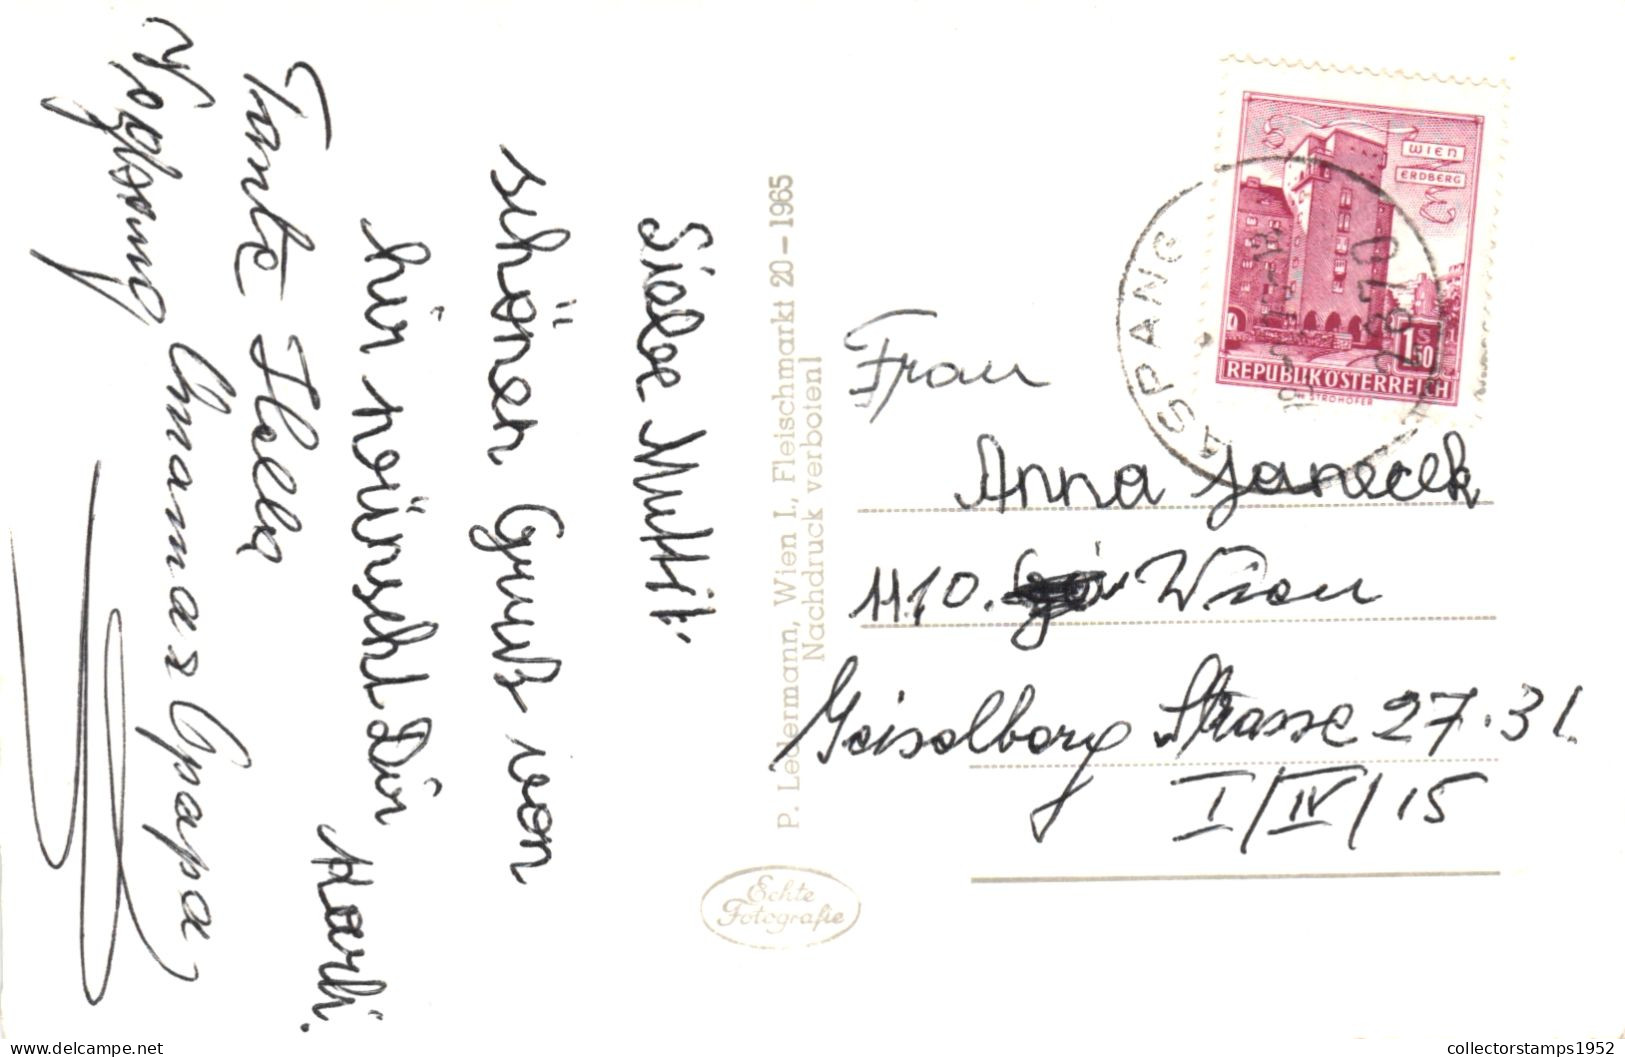 Siele Mutti!
schöner Gruß von
hir wünscht Dir
Harli.
Tante Hella
Omama & Opapa
P. Ledermann, Wien I., Fleischmarkt 20 - 1965
Nachdruck verboten!
Echte
Fotografie
WIEN
ERDBERG
1S50
REPUBLIK ÖSTERREICH
H STROHOFER
ASPANG
Frau
Anna Janecek
1110. Wien
Geiselberg Strasse 27.31.
I/IV/15
Delcampe.net
collectorstamps1952